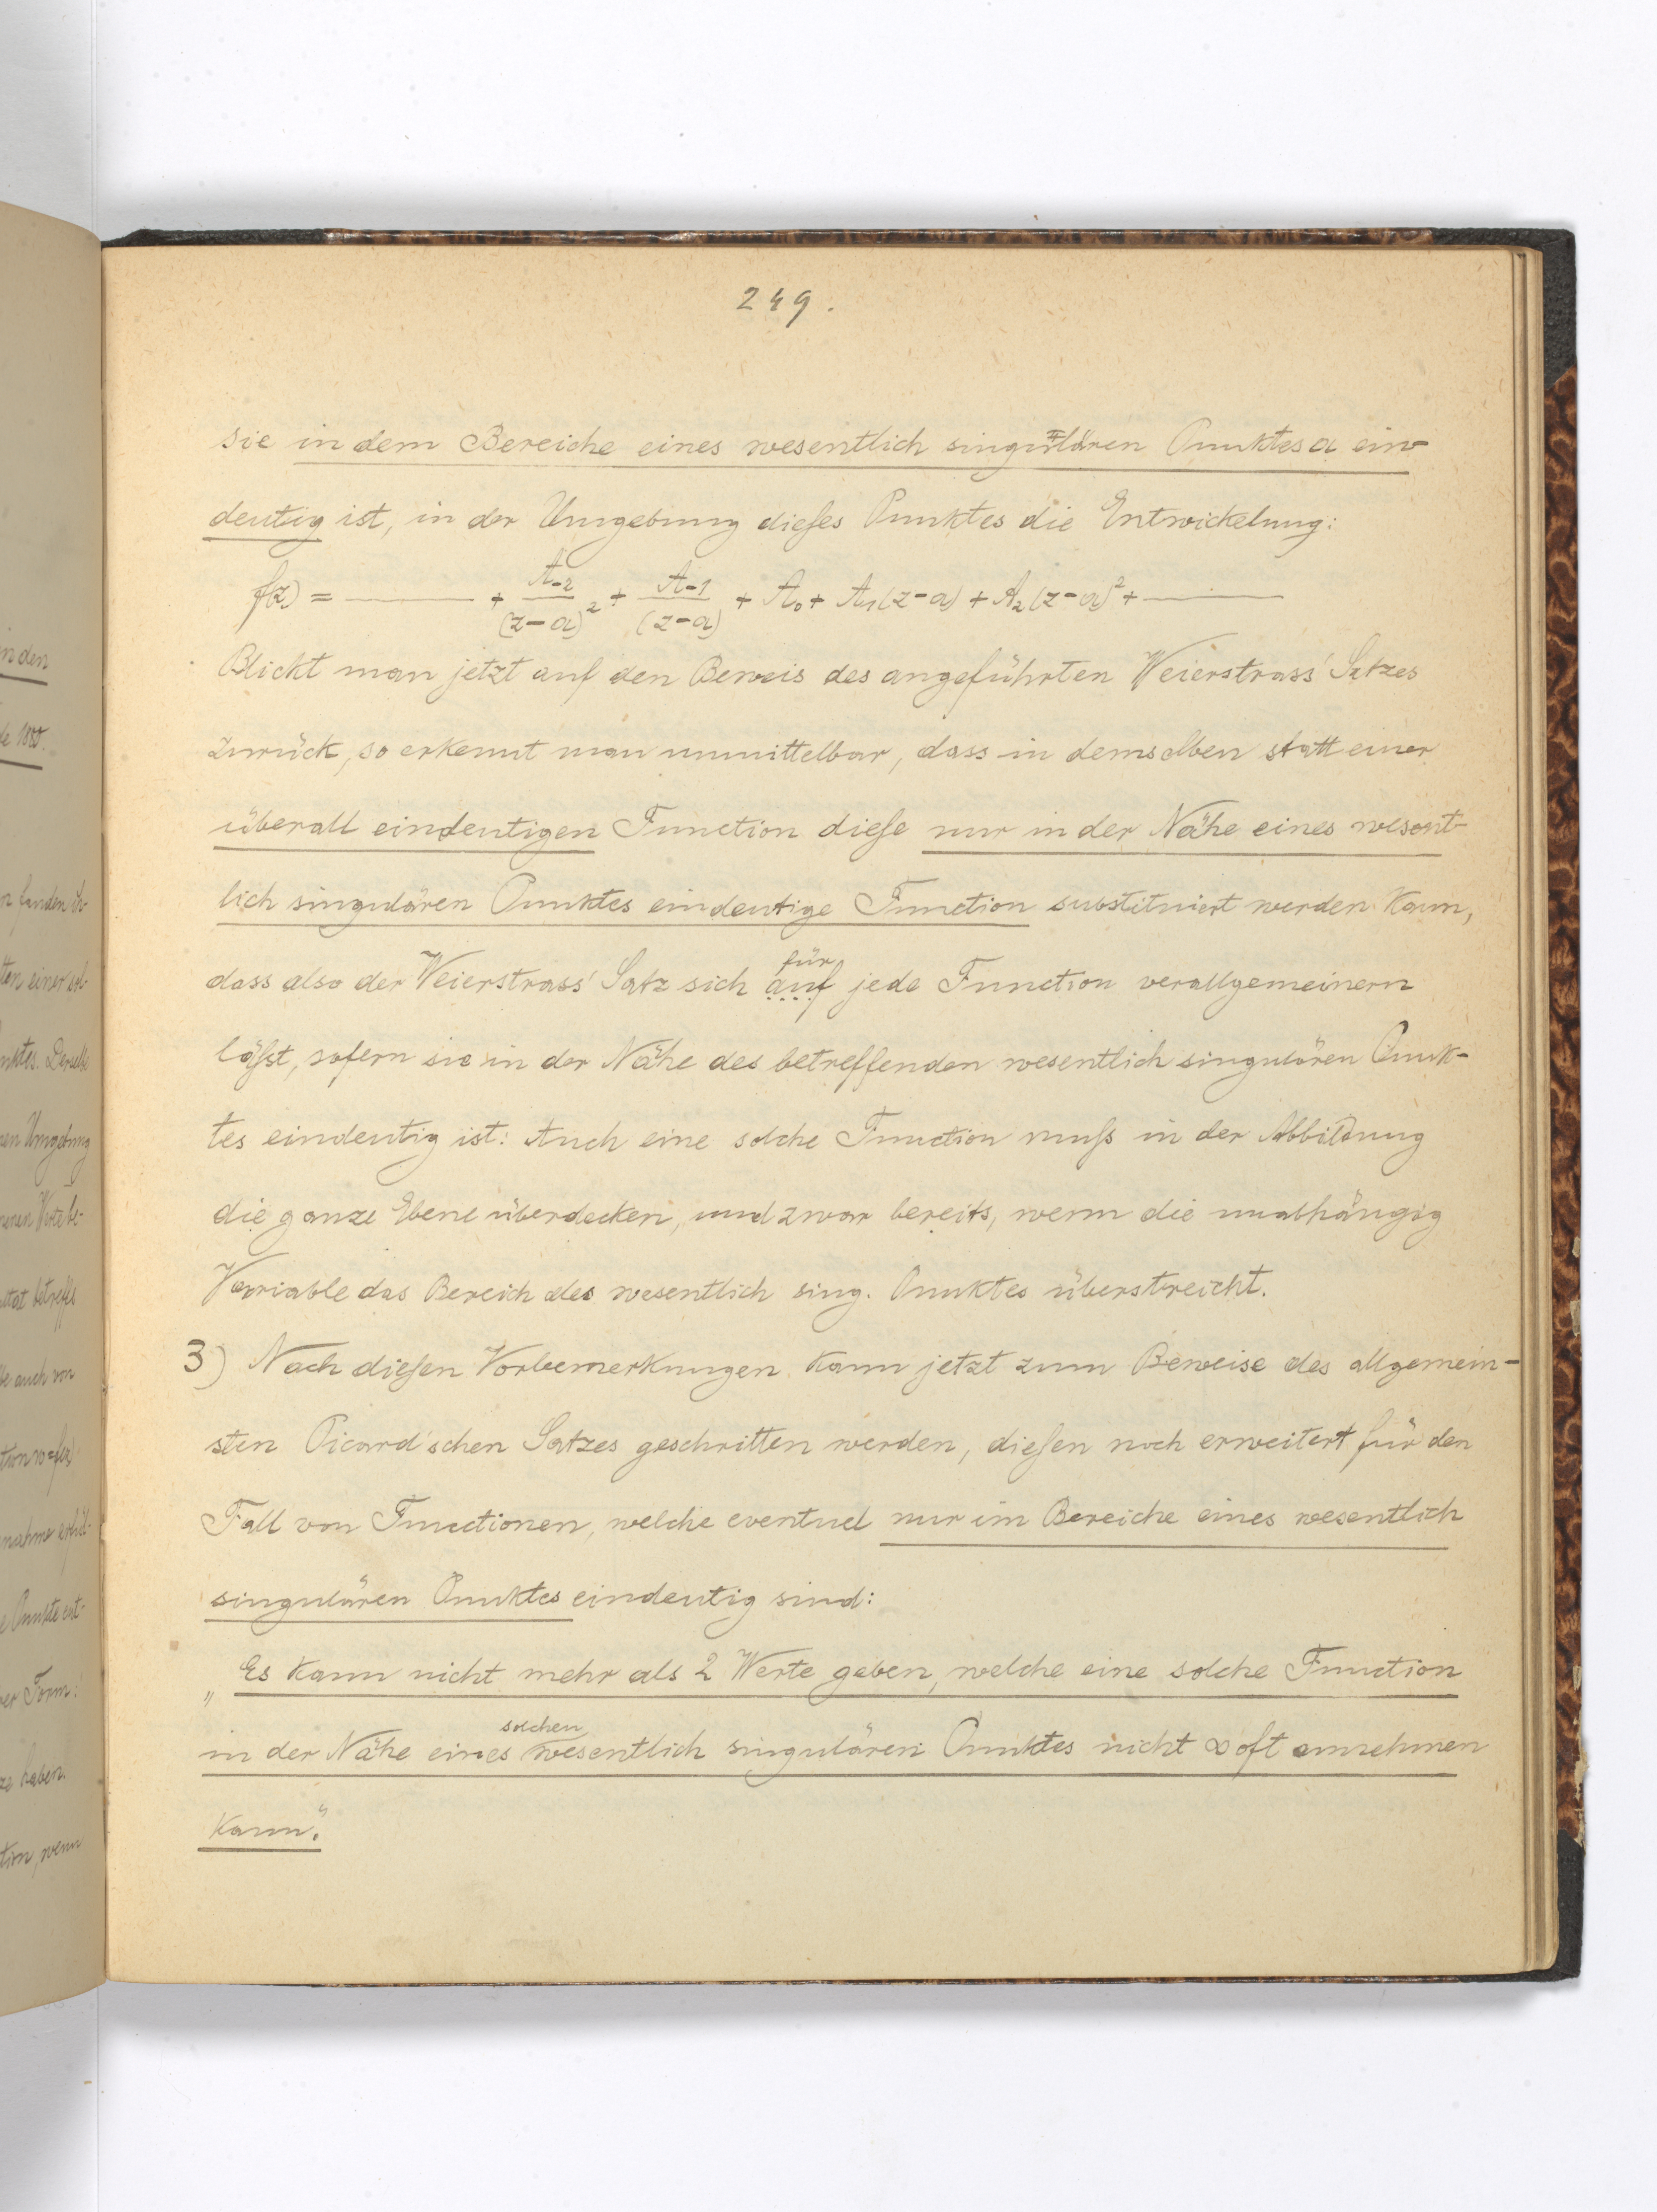 249.
sie in dem Bereiche eines wesentlich singulären Punktes a ein-
deutig ist, in der Umgebung dieſes Punktes die Entwickelung:
f(z) = ——— + A-2/(z-a)² + A-1/(z-a) + A₀ + A₁(z-a) + A₂(z-a)² + ———
Blickt man jetzt auf den Beweis des angeführten Weierstrass' Satzes
zurück, so erkennt man unmittelbar, dass in demselben statt einer
überall eindeutigen Function dieſe nur in der Nähe eines wesent-
lich singulären Punktes eindeutige Function substituiert werden kann,
für
dass also der Weierstrass' Satz sich auf jede Function verallgemeinern
läſst, sofern sie in der Nähe des betreffenden wesentlich singulären Punk-
tes eindeutig ist: Auch eine solche Function muſs in der Abbildung
die ganze Ebene überdecken, und zwar bereits, wenn die unabhängig
Variable das Bereich des wesentlich sing. Punktes überstreicht.
3) Nach dieſen Vorbemerkungen kann jetzt zum Beweise des allgemein-
sten Picard'schen Satzes geschritten werden, dieſen noch erweitert für den
Fall von Functionen, welche eventuel nur im Bereiche eines wesentlich
singulären Punktes eindeutig sind:
„Es kann nicht mehr als 2 Werte geben, welche eine solche Function
solchen
in der Nähe eines wesentlich singulären Punktes nicht ∞ oft annehmen
kann."
in den
de 1880.
ten einer sol-
nktes. Derselbe
nen Umgebung
be auch von
tion w=f(z)
e Punkte ent-
er Form:
ze haben.
tion, wenn